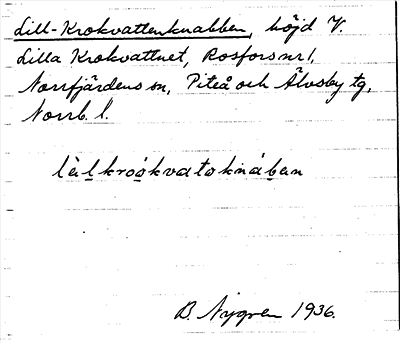 Lill-Krokvattenknabben, höjd V.
Lilla Krokvattnet, Rosfors nr 1,
Norrfjärdens sn, Piteå och Älvsby tg,
Norrb. l.
B. Nygren 1936.